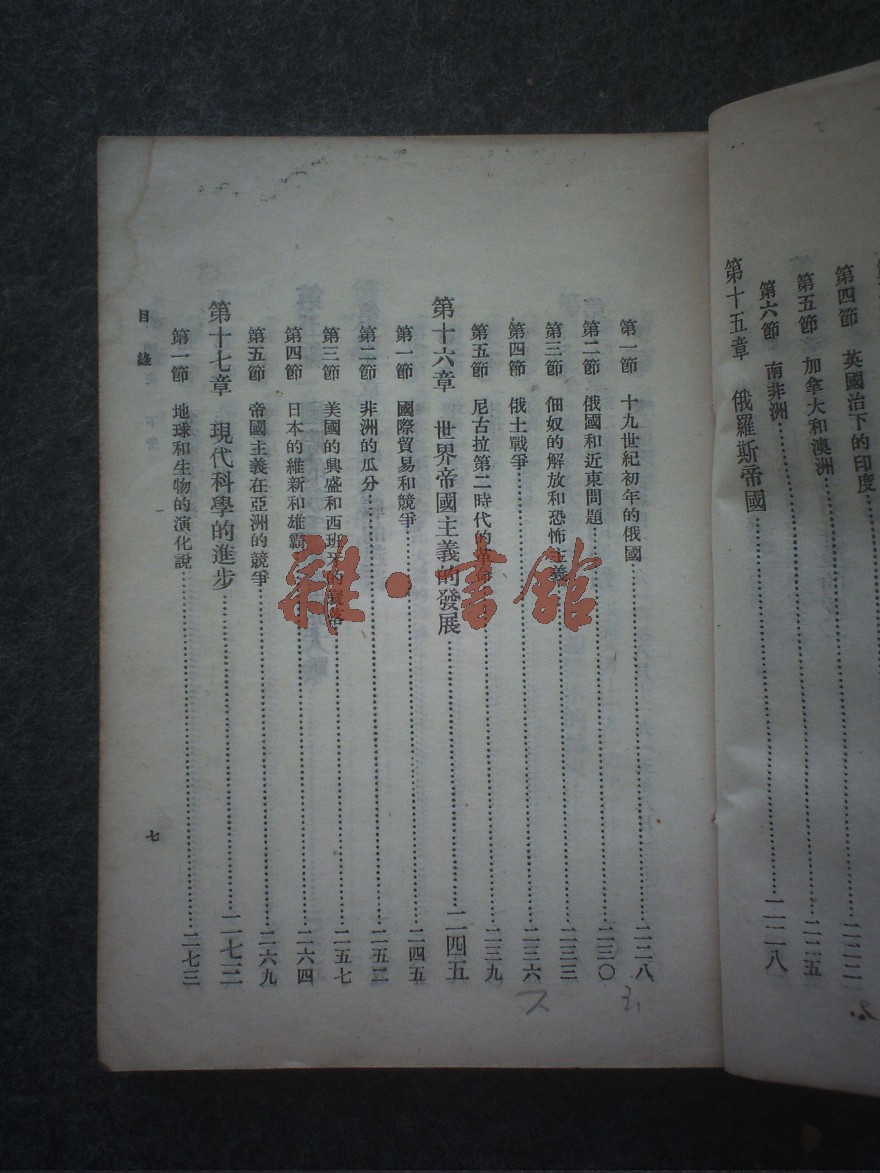 第四節 英國治下的印度
第五節 加拿大和澳洲……二二五
第六節 南非洲
第十五章 俄羅斯帝國……二二八
第一節 十九世紀初年的俄國……二二八
第二節 俄國和近東問題……二三〇
第三節 佃奴的解放和恐怖主義……二三三
第四節 俄土戰爭……二三六
第五節 尼古拉第二時代的革命……二三九
第十六章 世界帝國主義的發展……二四五
第一節 國際貿易和競爭……二四五
第二節 非洲的瓜分……二五二
第三節 美國的興盛和西班牙的衰落……二五七
第四節 日本的維新和雄霸……二六四
第五節 帝國主義在亞洲的競爭……二六九
第十七章 現代科學的進步……二七三
第一節 地球和生物的演化說……二七三
目錄
七
雜·書館